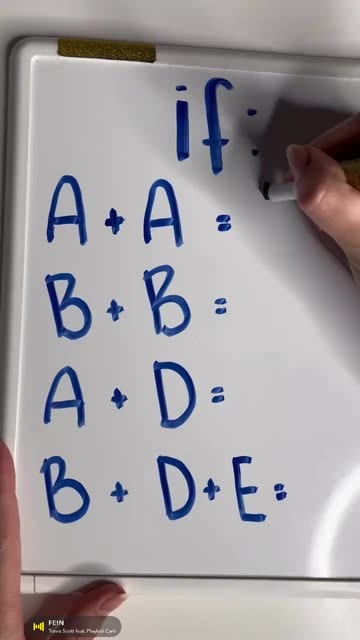 if:
A + A =
B + B =
A + D =
B + D + E =
FE!N
Travis Scott feat. Playboi Carti